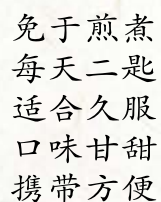 免于煎煮
每天二匙
适合久服
口味甘甜
携带方便